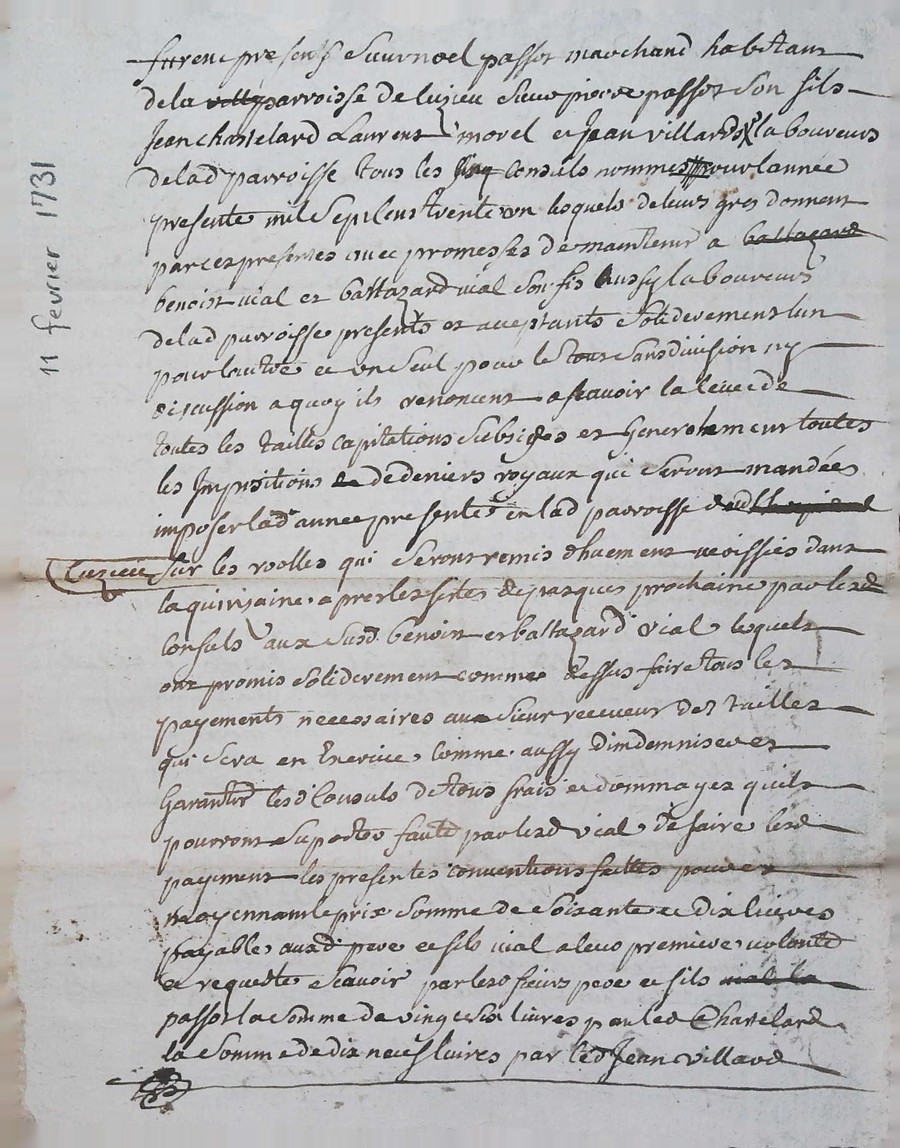 11 fevrier 1731
furent presents Sieur noel passot marchand habitant
de la parroisse de luzieu Sieur pierre passot son fils
Jean chastelard Laurent morel et Jean villard laboureurs
de lad parroisse tous les cinq Consuls nommes pour lannée
presente mil sept cens trente un lesquels de leurs gres donnent
par ces presentes avec promesses de maintenir a baltazard
benoist vial et baltazard vial son fis aussy laboureurs
de lad parroisse presents et acceptants soliderement lun
pour lautre et un seul pour le tout sans division ny
discussion a quoy ils renoncent ascavoir la levee de
toutes les tailles capitations subsides et generalement toutes
les Impositions de deniers royaux qui seront mandées
imposer lad annee presente en lad parroisse
Luzieu sur les roolles qui seront remis dhuement veriffiés dans
la quinzaine apres les fetes de pasques prochaine par lesd
Consuls aux susd benoist et baltazard vial lesquels
ont promis soliderement comme dessus faire tous les
payements necessaires au sieur receveur des tailles
qui sera en Exercice, comme aussy dindemniser et
Garantir lesd Consuls de tous frais et dommages quils
pourront suporter faute par lesd vial de faire lesd
payement les presentes conventions faittes
moyennant le prix somme de soixante et dix livres
payable auxd pere et fils vial a leur premiere volonté
et requette scavoir par lesd sieurs pere et fils vial la
passot la somme de vingt et six livres par led Chastelard
la somme de dix neuf livres par led Jean villard